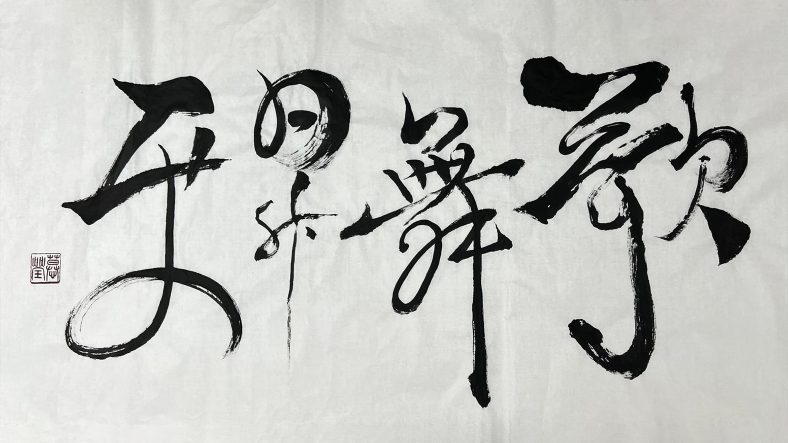 歌舞昇平